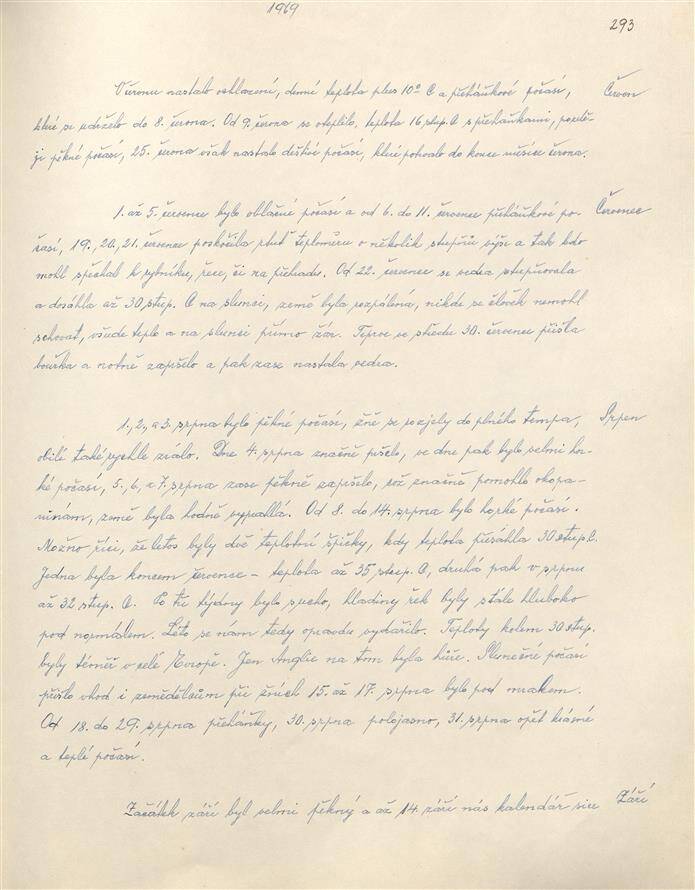 1969
293
V červnu nastalo ochlazení, denní teplota plus 10° C a přeháňkové počasí, Červen
které se udrželo do 8. června. Od 9. června se oteplilo, teplota 16 stup. C s přeháňkami, pozdě-
ji pěkné počasí, 25. června však nastalo deštivé počasí, které potrvalo do konce měsíce června.
1. až 5. července bylo oblačné počasí a od 6. do 11. července přeháňkové po- Červenec
časí, 19., 20., 21. července poskočila rtuť teploměru o několik stupňů výše a tak kdo
mohl spěchal k rybníku, řece, či na přehradu. Od 22. července se vedra stupňovala
a dosáhla až 30 stup. C na slunci, země byla rozpálená, nikde se člověk nemohl
schovat, všude teplo a na slunci přímo žár. Teprve ve středu 30. července přišla
bouřka a notně zapršelo a pak zase nastala vedra.
1., 2., a 3. srpna bylo pěkné počasí, žně se rozjely do plného tempa, Srpen
obilí také rychle zrálo. Dne 4. srpna značně pršelo, ve dne pak bylo velmi hor-
ké počasí, 5., 6., a 7. srpna zase pěkně zapršelo, což značně pomohlo okopa-
ninám, země byla hodně vyprahlá. Od 8. do 14. srpna bylo horké počasí.
Možno říci, že letos byly dvě teplotní špičky, kdy teplota přesáhla 30 stup. C.
Jedna byla koncem července – teplota až 35 stup. C, druhá pak v srpnu
až 32 stup. C. Po tři týdny bylo sucho, hladiny řek byly stále hluboko
pod normálem. Léto se nám tedy opravdu vydařilo. Teploty kolem 30 stup.
byly téměř v celé Evropě. Jen Anglie na tom byla hůře. Slunečné počasí
přišlo vhod i zemědělcům při žních 15. až 17. srpna bylo pod mrakem.
Od 18. do 29. srpna přeháňky, 30. srpna polojasno, 31. srpna opět krásné
a teplé počasí.
Začátek září byl velmi pěkný a až 14. září nás kalendář sice Září